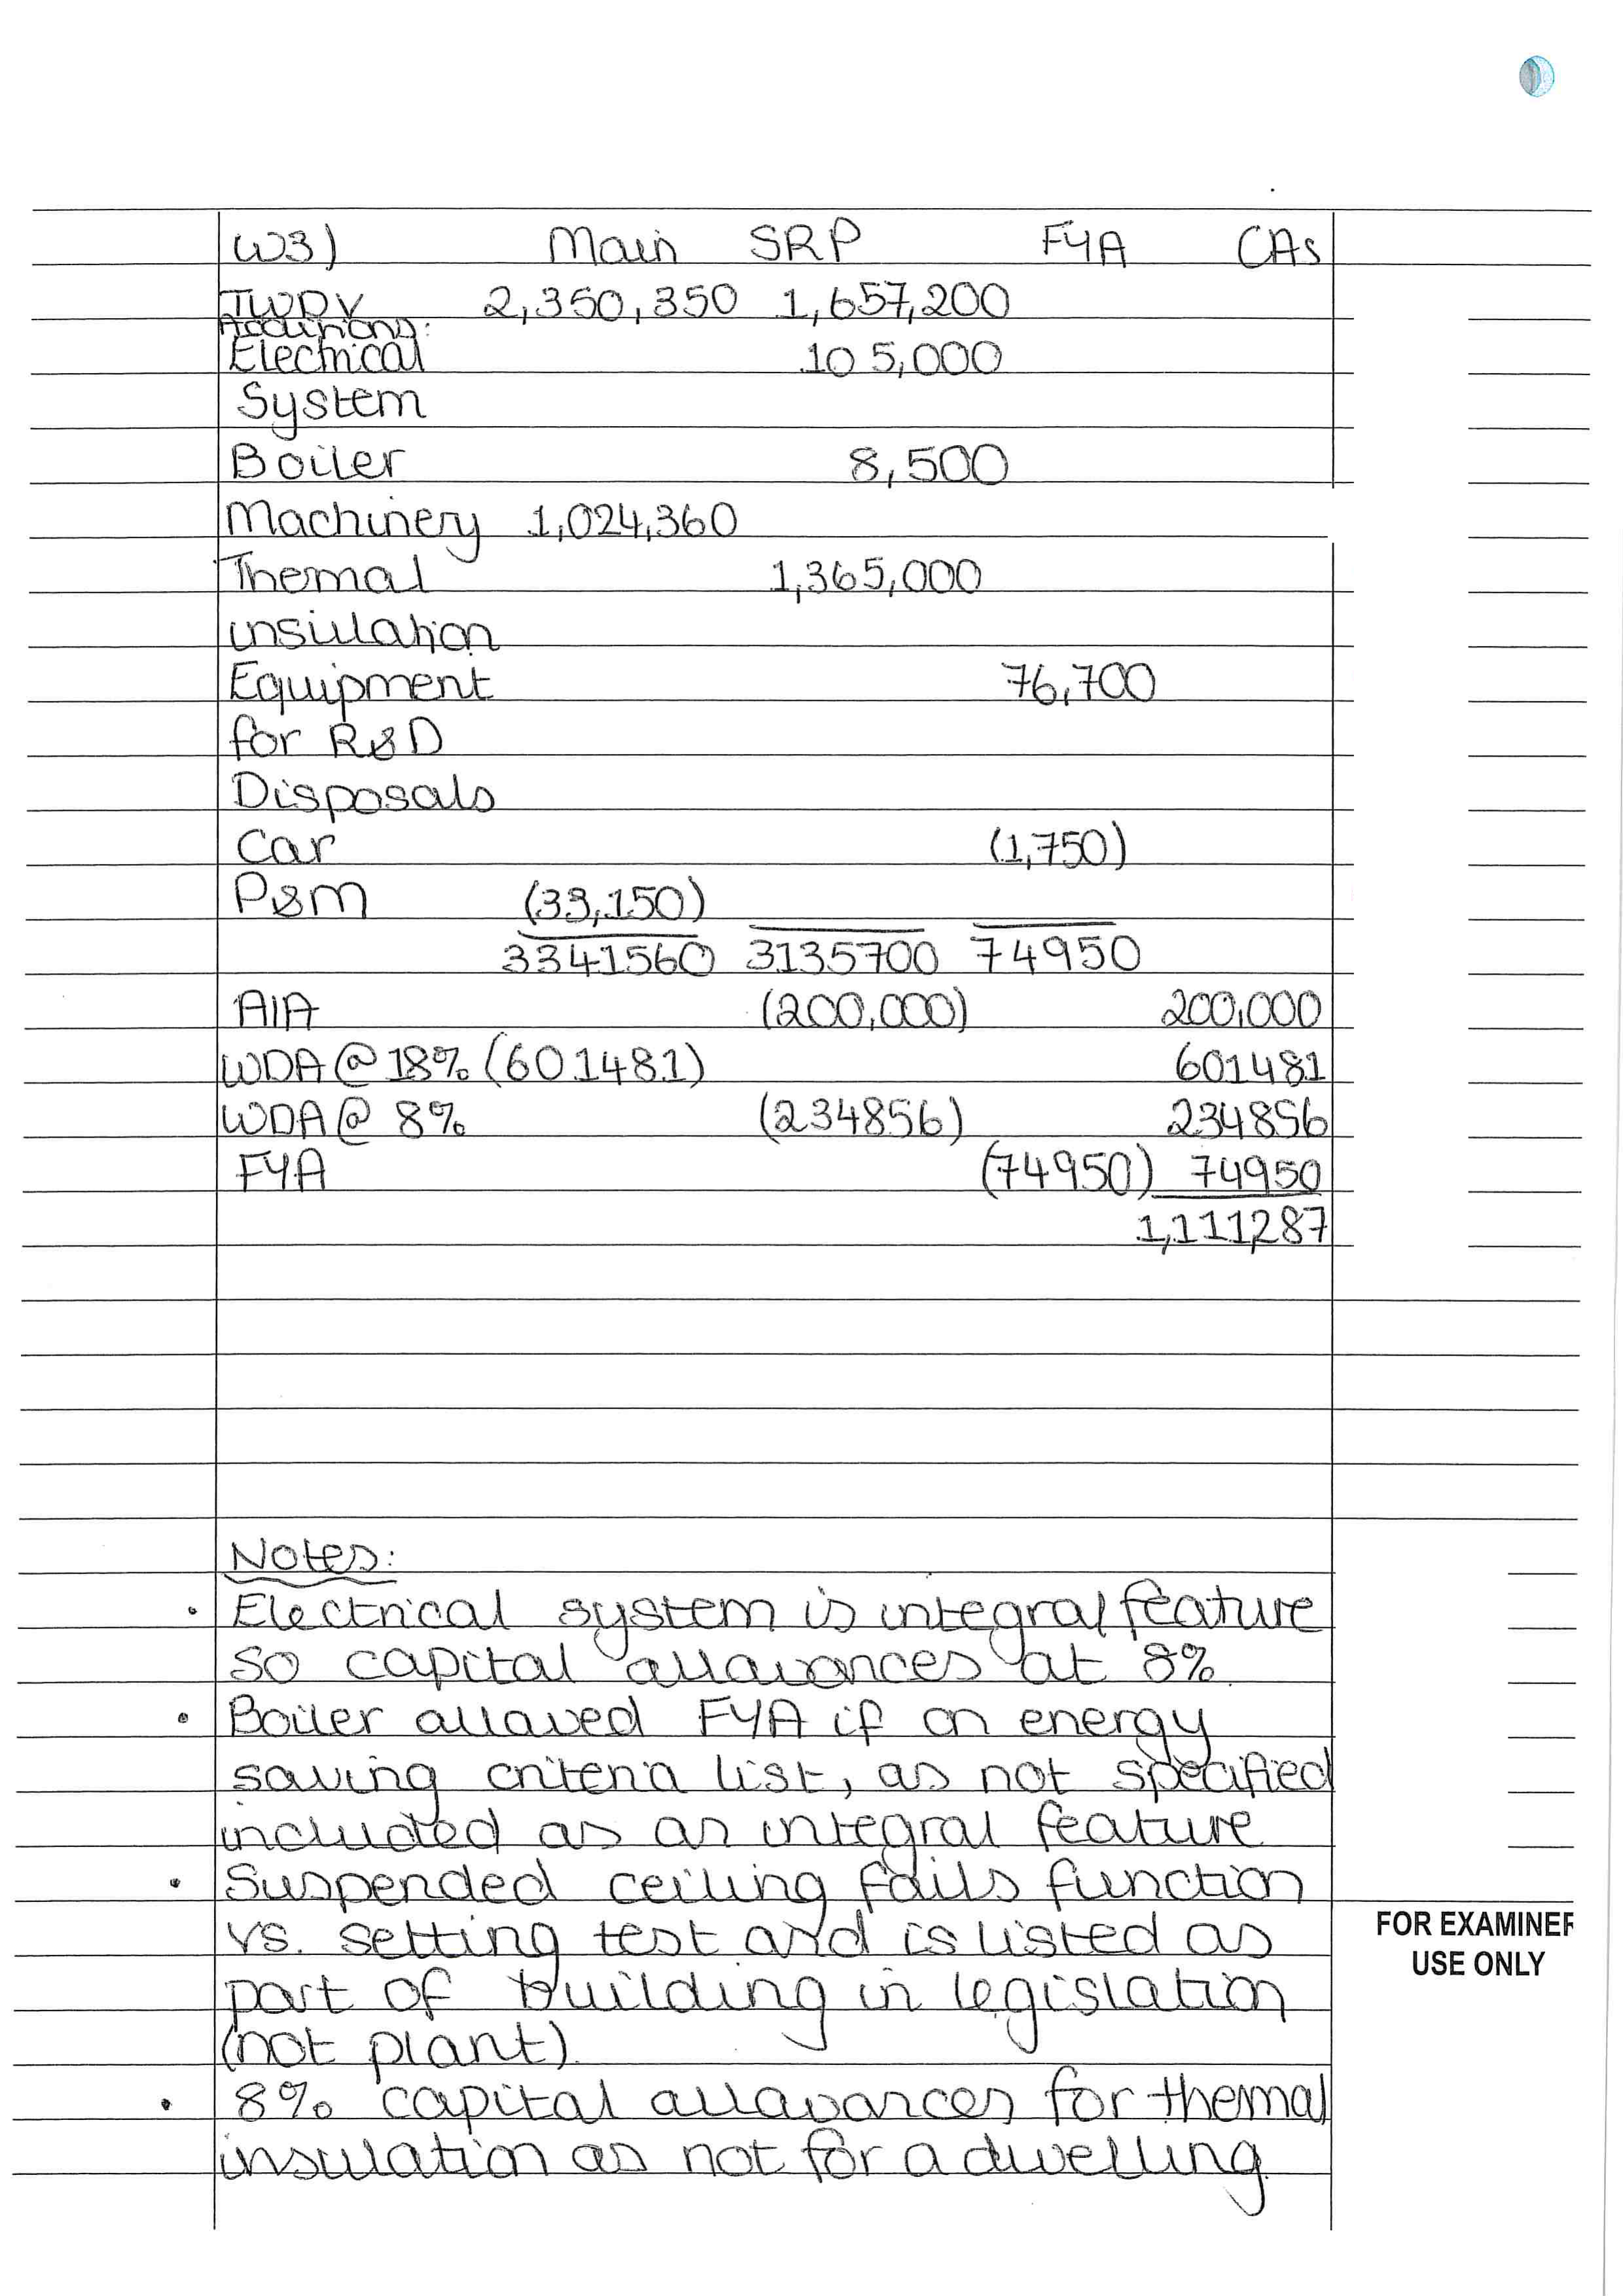 W3) Main SRP FYA CAs
TWDV 2,350,350 1,657,200
Additions:
Electrical 105,000
System
Boiler 8,500
Machinery 1,024,360
Themal 1,365,000
insulation
Equipment 76,700
for R&D
Disposals
Car (1,750)
P&M (33,150)
3341560 3135700 74950
AIA (200,000) 200,000
WDA @ 18% (601481) 601481
WDA @ 8% (234856) 234856
FYA (74950) 74950
1,111,287
Notes:
• Electrical system is integral feature
so capital allowances at 8%
• Boiler allowed FYA if on energy
saving criteria list, as not specified
included as an integral feature
• Suspended ceiling fails function
vs. setting test and is listed as
part of building in legislation
(not plant).
• 8% capital allowances for themal
insulation as not for a dwelling
FOR EXAMINER
USE ONLY